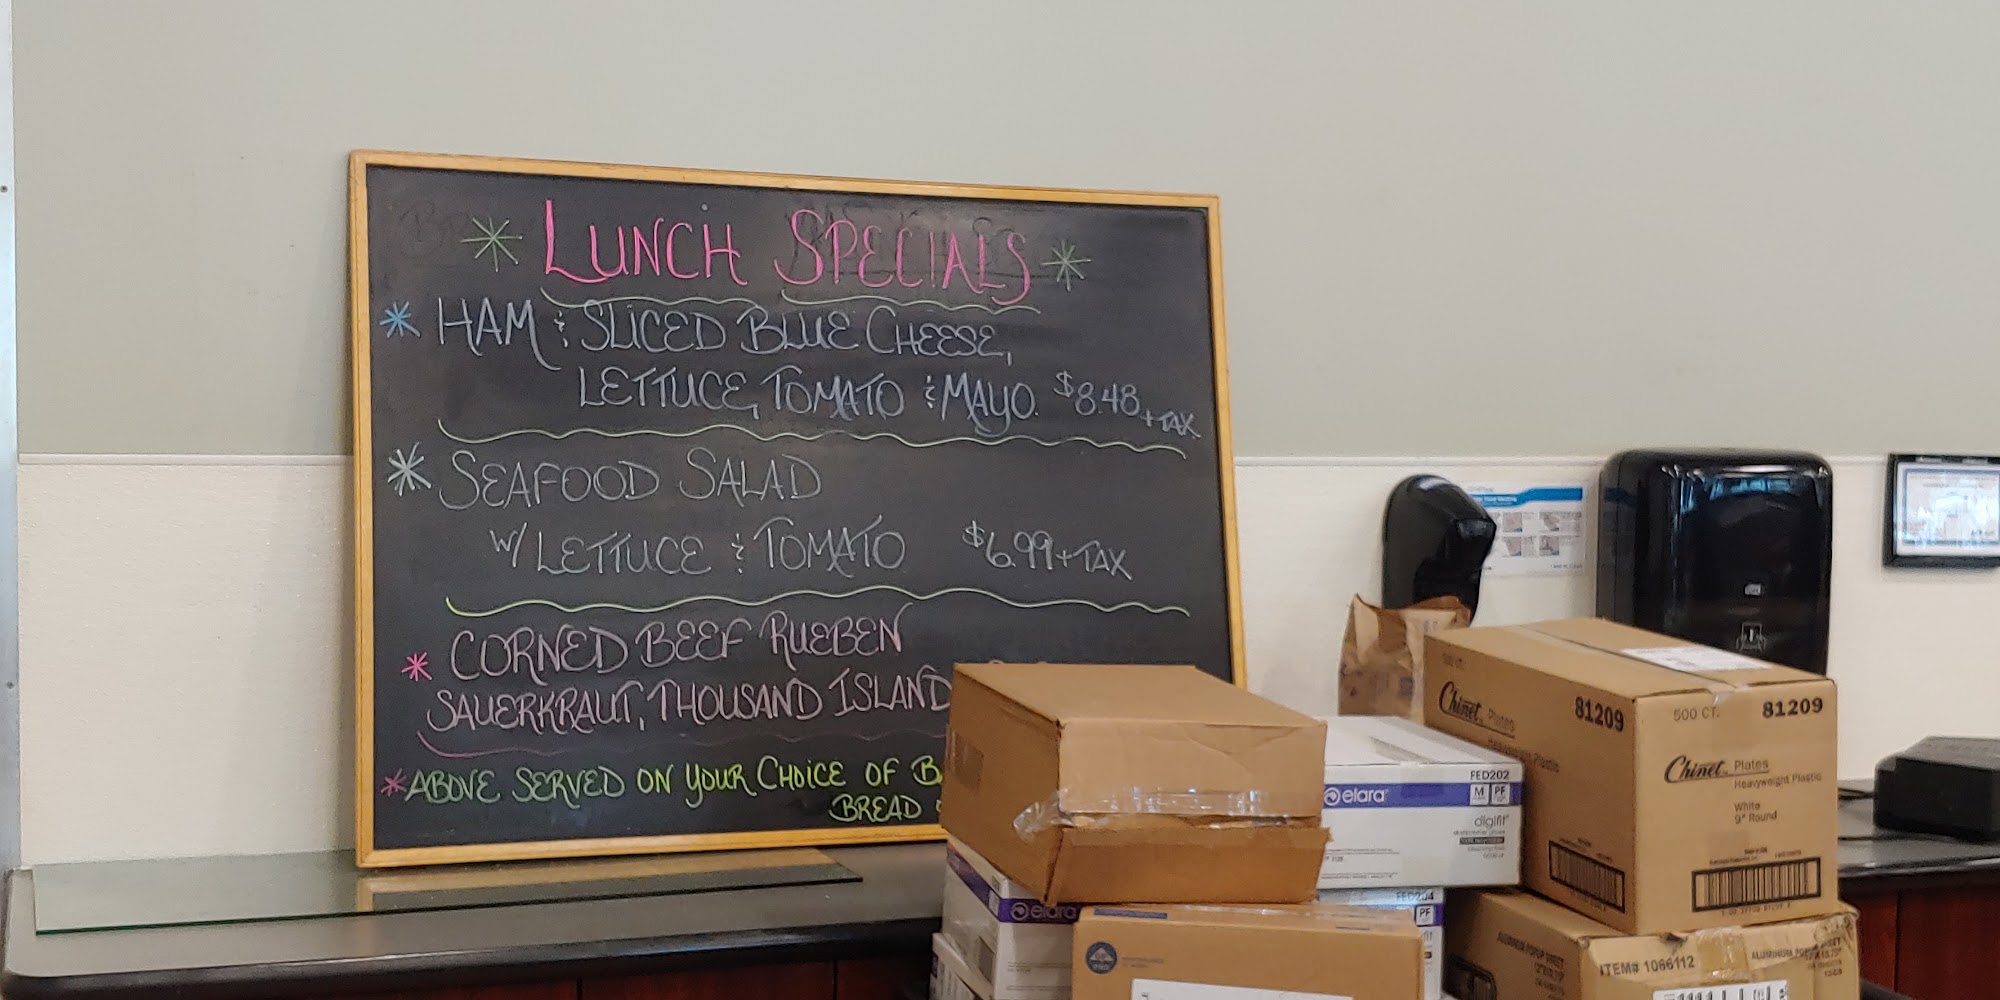 LUNCH SPECIALS
HAM & SLICED BLUE CHEESE,
LETTUCE, TOMATO & MAYO. $8.48 + TAX
SEAFOOD SALAD
W/ LETTUCE & TOMATO $6.99 + TAX
CORNED BEEF RUEBEN
SAUERKRAUT, THOUSAND ISLAND
ABOVE SERVED ON YOUR CHOICE OF
BREAD
Chinet Plates 81209
Heavyweight Plastic
500 CT. 81209
Chinet Plates
Heavyweight Plastic
White
9" Round
FED202
elara M PF
digifit
FED204
elara PF
ITEM# 1066112